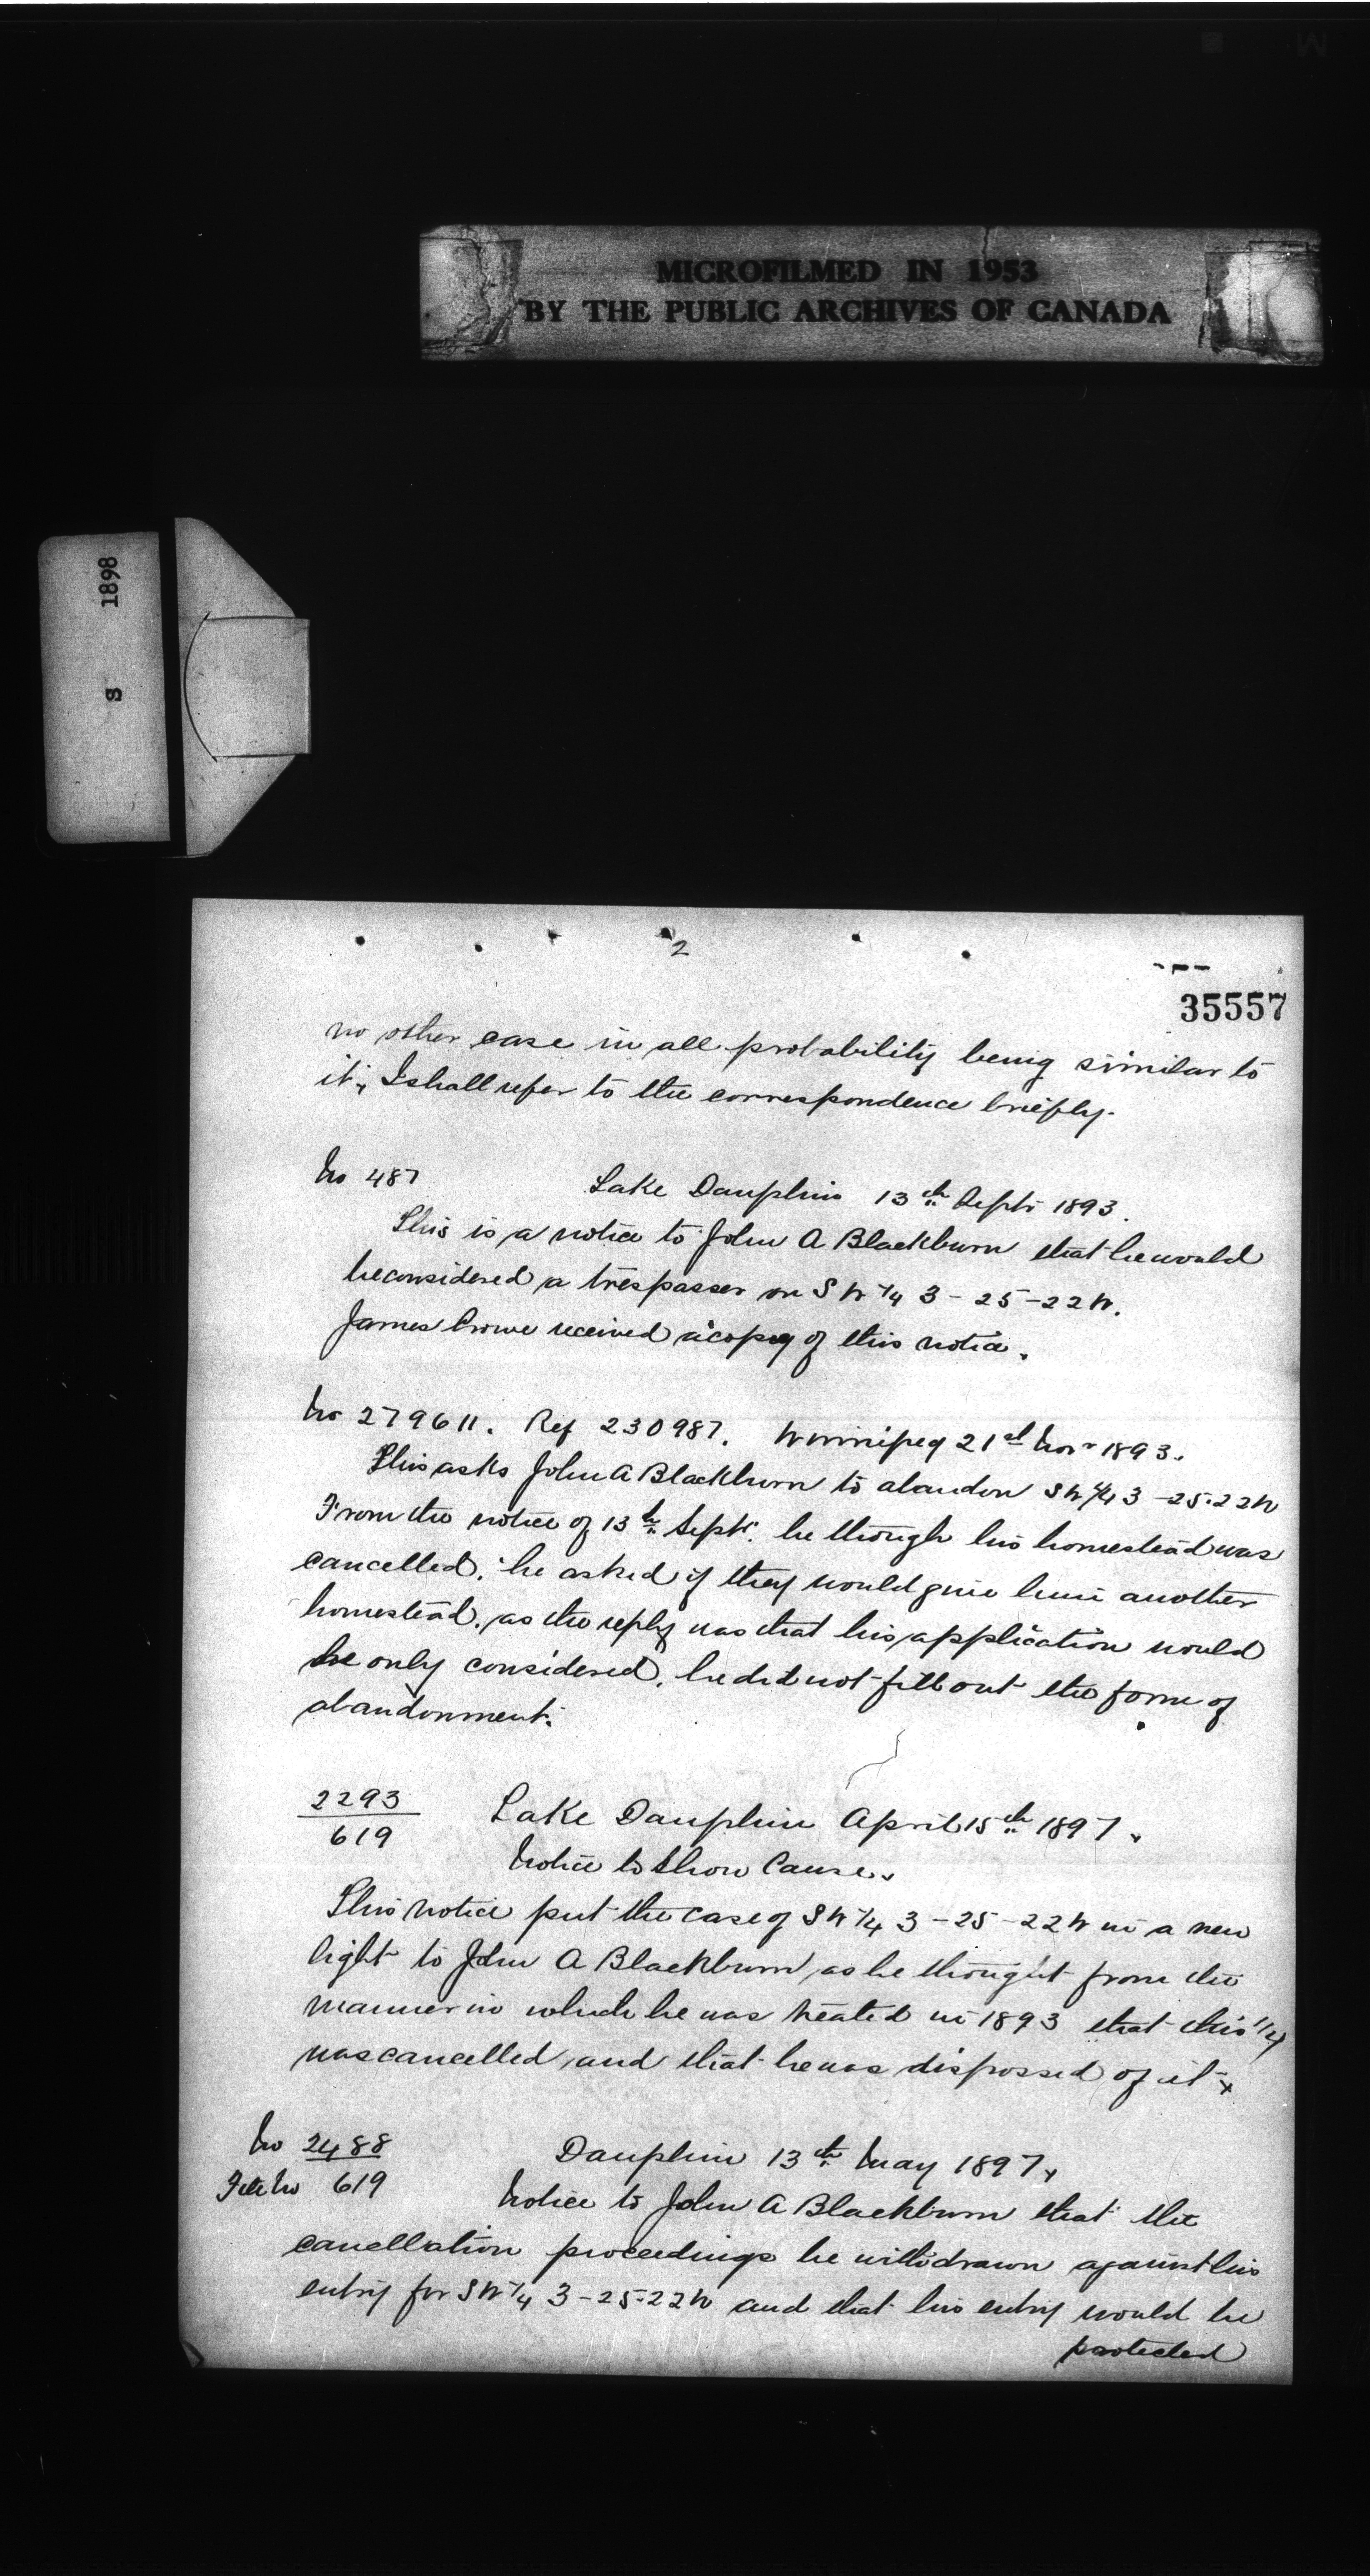 MICROFILMED IN 1953
BY THE PUBLIC ARCHIVES OF CANADA
S 1898
2
35557
no other case in all probability being similar to
it, I shall refer to the correspondence briefly.
No 487 Lake Dauphin 13th Sept 1893.
This is a notice to John A Blackburn that he would
be considered a trespasser on S W 1/4 3 - 25 - 22 W.
James Crowe received a copy of this notice.
No 279611. Ref 230987. Winnipeg 21st Nov 1893.
This asks John A Blackburn to abandon S W 1/4 3 - 25 - 22 W
From the notice of 13th Sept. he though his homestead was
cancelled. he asked if they would give him another
homestead. as the reply was that his application would
be only considered. he did not fill out the form of
abandonment.
2293
619
Lake Dauphin April 15th 1897.
Notice to Show Cause.
This notice put the case of S W 1/4 3 - 25 - 22 W in a new
light to John A Blackburn as he thought from the
manner in which he was treated in 1893 that this 1/4
was cancelled and that he was dispossed of it.
No 2488 Dauphin 13th May 1897.
File No 619 Notice to John A Blackburn that the
cancellation proceedings be withdrawn against his
entry for S W 1/4 3 - 25 - 22 W and that his entry would be
protected